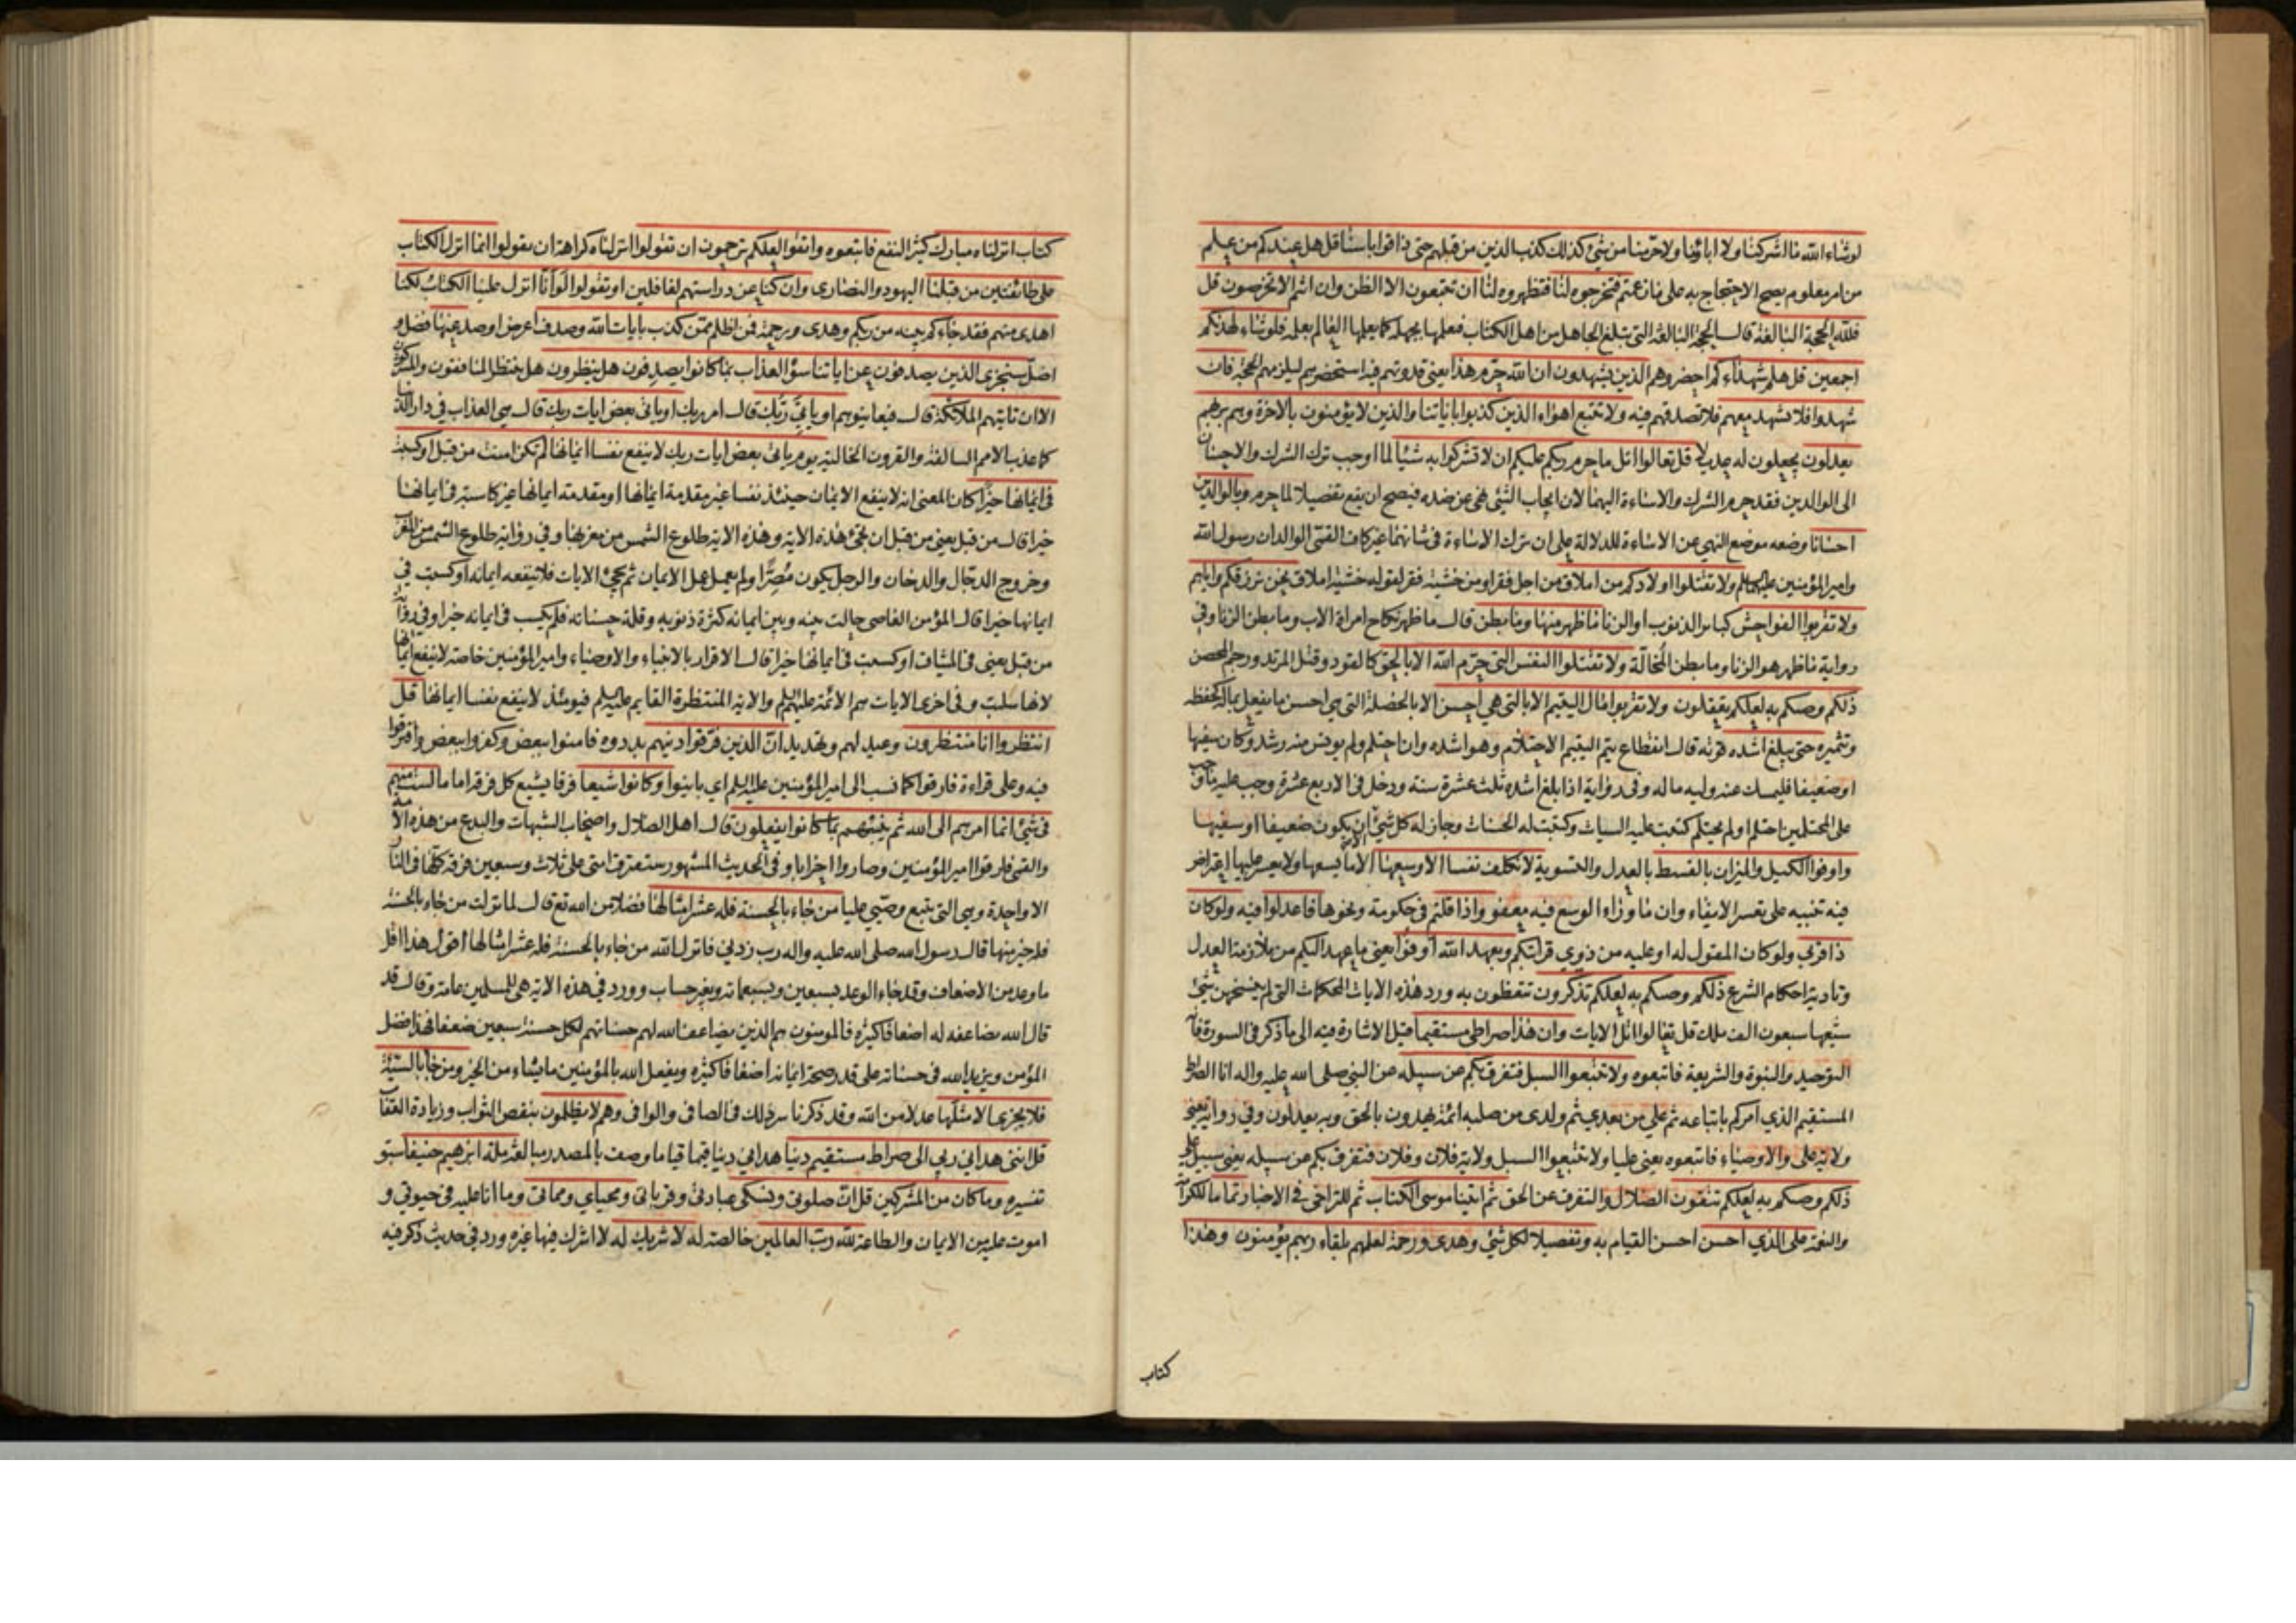 لو شاء الله ما اشركنا ولا اباؤنا ولا حرمنا من شيء كذلك كذب الذين من قبلهم حتى ذاقوا باسنا قل هل عندكم من علم
من امر معلوم يصح الاحتجاج به على ما زعمتم فتخرجوه لنا فتظهروه لنا ان تتبعون الا الظن وان انتم الا تخرصون قل
فلله الحجة البالغة قال الحجة البالغة التي تبلغ الجاهل من اهل الكتاب فعلمها بجهله كما يعلمها العالم بعلمه فلو شاء لهديكم
اجمعين قل هلم شهداءكم احضروهم الذين يشهدون ان الله حرم هذا يعني قدوتهم فيه استحضرهم ليلزمهم الحجة فان
شهدوا فلا تشهد معهم فلا تصدقهم فيه ولا تتبع اهواء الذين كذبوا باياتنا والذين لا يؤمنون بالاخرة وهم بربهم
يعدلون يجعلون له عديلا قل تعالوا اتل ما حرم ربكم عليكم ان لا تشركوا به شيئا لما اوجب ترك الشرك والاحسان
الى الوالدين فقد حرم الشرك والاساءة اليهما لان ايجاب الشيء نهي عن ضده فيصح ان يقع تفصيلا لما حرم وبالوالدين
احسانا وضعه موضع النهي عن الاساءة للدلالة على ان ترك الاساءة في شانهما غير كاف القمي الوالدان رسول الله
وامير المؤمنين ولا تقتلوا اولادكم من املاق من اجل فقر او من خشية فقر لقوله خشية املاق نحن نرزقكم واياهم
ولا تقربوا الفواحش كبائر الذنوب او الزنا ما ظهر منها وما بطن قال ما ظهر نكاح امراة الاب وما بطن الزنا وفي
رواية ما ظهر هو الزنا وما بطن المخالة ولا تقتلوا النفس التي حرم الله الا بالحق كالقود وقتل المرتد ورجم المحصن
ذلكم وصيكم به لعلكم تعقلون ولا تقربوا مال اليتيم الا بالتي هي احسن الا بالخصلة التي هي احسن ما يفعل بماله كحفظه
وتثميره حتى يبلغ اشده قوته قال انقطاع يتم اليتيم الاحتلام وهو اشده وان احتلم ولم يونس منه رشد وكان سفيها
او ضعيفا فليمسك عنه وليه ماله وفي رواية اذا بلغ اشده ثلث عشرة سنة ودخل في الاربع عشرة وجب عليه ما وجب
على المحتلمين احتلم او لم يحتلم كتبت عليه السيات وكتبت له الحسنات وجاز له كل شيء الا ان يكون ضعيفا او سفيها
واوفوا الكيل والميزان بالقسط بالعدل والتسوية لا نكلف نفسا الا وسعها الا ما يسعها ولا يعسر عليها اعتراض
فيه تنبيه على تعسر الايفاء وان ما وراء الوسع فيه معفو واذا قلتم في حكومة ونحوها فاعدلوا فيه ولو كان
ذا قربى ولو كان المقول له او عليه من ذوي قرابتكم وبعهد الله اوفوا يعني ما عهد اليكم من ملازمة العدل
وتادية احكام الشرع ذلكم وصيكم به لعلكم تذكرون تتعظون به ورد هذه الايات المحكمات التي لم ينسخهن شيء
شيعها سبعون الف ملك قل تعالوا اتل الايات وان هذا صراطي مستقيما قيل الاشارة فيه الى ما ذكر في السورة
التوحيد والنبوة والشريعة فاتبعوه ولا تتبعوا السبل فتفرق بكم عن سبيله عن النبي صلى الله عليه واله انا الصراط
المستقيم الذي امركم باتباعه ثم علي من بعدي ثم ولدي من صلبه ائمة يهدون بالحق وبه يعدلون وفي رواية يعني
ولاية علي والاوصياء فاتبعوه يعني عليا ولا تتبعوا السبل ولاية فلان وفلان فتفرق بكم عن سبيله يعني سبيل علي
ذلكم وصيكم به لعلكم تتقون الضلال والتفرق عن الحق ثم اتينا موسى الكتاب ثم للتراخي في الاخبار تماما للكرامة
والنعمة على الذي احسن احسن القيام به وتفصيلا لكل شيء وهدى ورحمة لعلهم بلقاء ربهم يؤمنون وهذا
كتاب
كتاب انزلناه مبارك كثير النفع فاتبعوه واتقوا لعلكم ترحمون ان تقولوا انزلناه كراهة ان تقولوا انما انزل الكتاب
على طائفتين من قبلنا اليهود والنصارى وان كنا عن دراستهم لغافلين او تقولوا لو انا انزل علينا الكتاب لكنا
اهدى منهم فقد جاءكم بينة من ربكم وهدى ورحمة فمن اظلم ممن كذب بايات الله وصدف اعرض او صد عنها فضل و
اضل سنجزي الذين يصدفون عن اياتنا سوء العذاب بما كانوا يصدفون هل ينظرون هل ينتظر المنافقون والمشركون
الا ان تاتيهم الملائكة قال فيعاينوهم او ياتي ربك قال امر ربك او ياتي بعض ايات ربك قال هي العذاب في دار الدنيا
كما عذب الامم السالفة والقرون الخالية يوم ياتي بعض ايات ربك لا ينفع نفسا ايمانها لم تكن امنت من قبل او كسبت
في ايمانها خيرا كان المعنى انه لا ينفع الايمان حينئذ نفسا غير مقدمة ايمانها او مقدمة ايمانها غير كاسبة في ايمانها
خيرا قال من قبل يعني من قبل ان تجيء هذه الاية وهذه الاية طلوع الشمس من مغربها وفي رواية طلوع الشمس من المغرب
وخروج الدجال والدخان والرجل يكون مصرا ولم يعمل عمل الايمان ثم تجيء الايات فلا ينفعه ايمانه او كسبت في
ايمانها خيرا قال المؤمن العاصي حالت بينه وبين ايمانه كثرة ذنوبه وقلة حسناته فلم يكسب في ايمانه خيرا وفي رواية
من قبل يعني في الميثاق او كسبت في ايمانها خيرا قال الاقرار بالانبياء والاوصياء وامير المؤمنين خاصة لا ينفع ايمانها
لانها سلبت وفي اخرى الايات هم الائمة والاية المنتظرة القايم فيومئذ لا ينفع نفسا ايمانها قل
انتظروا انا منتظرون وعيد لهم وتهديد ان الذين فرقوا دينهم بددوه فامنوا ببعض وكفروا ببعض وافترقوا
فيه وعلى قراءة فارقوا كما نسب الى امير المؤمنين اي باينوا وكانوا شيعا فرقا يشيع كل فرقة اماما لست منهم
في شيء انما امرهم الى الله ثم ينبئهم بما كانوا يفعلون قال اهل الضلال واصحاب الشبهات والبدع من هذه الامة
والقمي فارقوا امير المؤمنين وصاروا احزابا وفي الحديث المشهور ستفترق امتي على ثلاث وسبعين فرقة كلها في النار
الا واحدة وهي التي تتبع وصيي عليا من جاء بالحسنة فله عشر امثالها فضلا من الله تع قال لما نزلت من جاء بالحسنة
فله خير منها قال رسول الله صلى الله عليه واله رب زدني فانزل الله من جاء بالحسنة فله عشر امثالها اقول هذا اقل
ما وعد من الاضعاف وقد جاء الوعد بسبعين وبسبعمائة وبغير حساب وورد في هذه الاية هي للمسلمين عامة وقال قد
قال الله يضاعفه له اضعافا كثيرة فالمومنون هم الذين يضاعف الله لهم حسناتهم لكل حسنة سبعين ضعفا فهذا فضل
المؤمن ويزيد الله في حسناته على قدر صحة ايمانه اضعافا كثيرة ويفعل الله بالمؤمنين ما يشاء من الخير ومن جاء بالسيئة
فلا يجزى الا مثلها عدلا من الله وقد ذكرنا سر ذلك في الصافي والوافي وهم لا يظلمون بنقص الثواب وزيادة العقاب
قل انني هداني ربي الى صراط مستقيم دينا هداني دينا قيما قياما وصف بالمصدر مبالغة ملة ابرهيم حنيفا سبق
تفسيره وما كان من المشركين قل ان صلوتي ونسكي عبادتي وقرباني ومحياي ومماتي وما انا عليه في حيوتي و
اموت عليه من الايمان والطاعة لله رب العالمين خالصة له لا شريك له لا اشرك فيها غيره ورد في حديث ذكر فيه